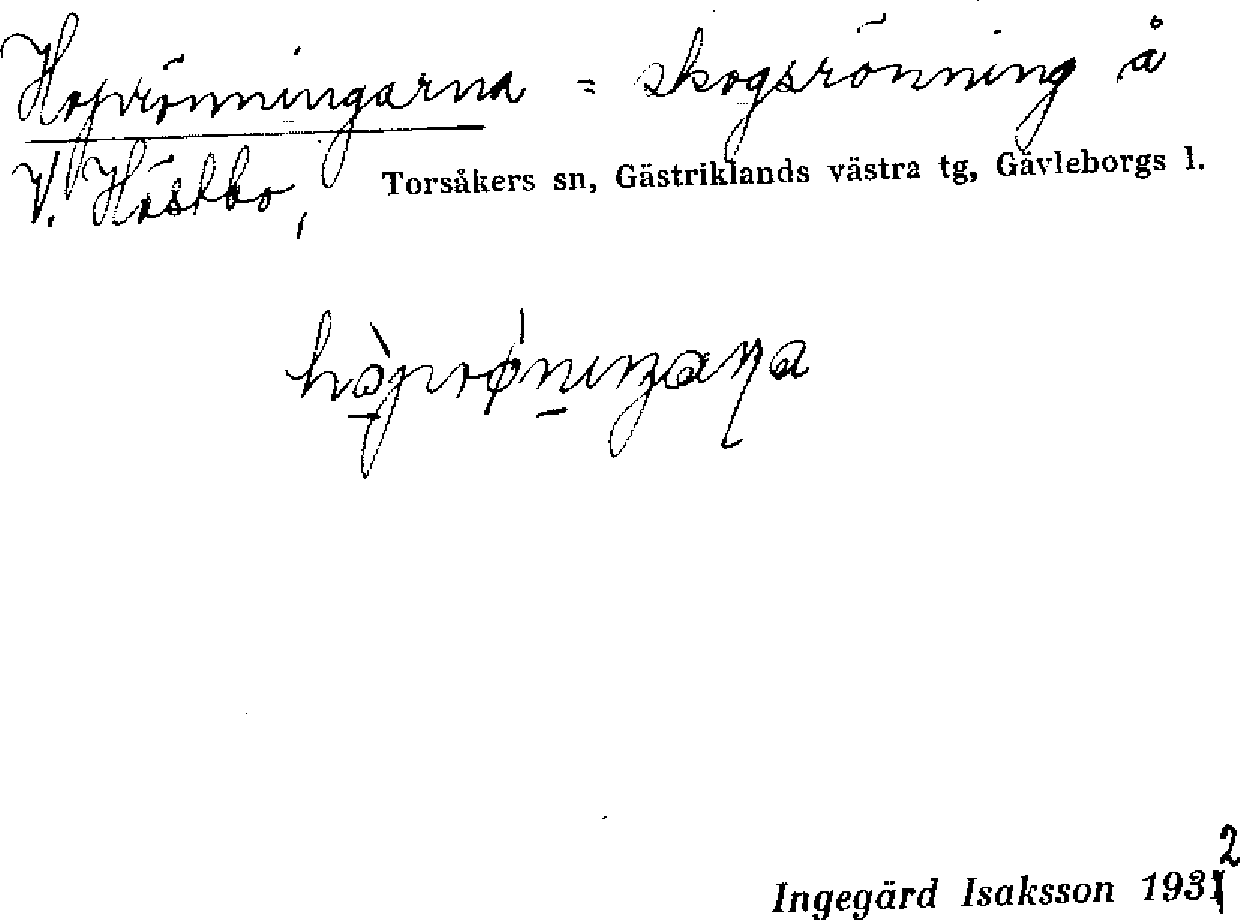 Hoprönningarna = skogsrönning å
V. Hästbo, Torsåkers sn, Gästriklands västra tg, Gävleborgs l.
hòprøniŋaɳa
Ingegärd Isaksson 1932